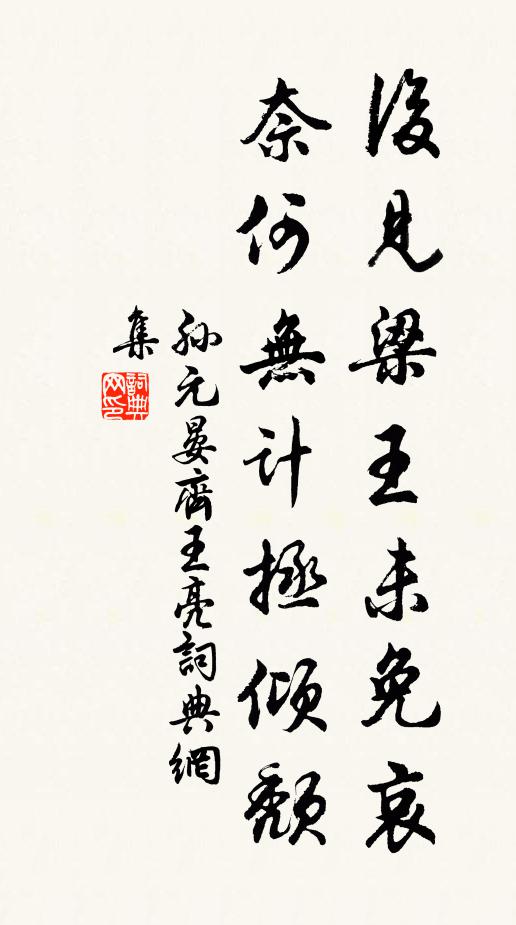 後見梁王未免哀
奈何無計拯傾頹
孫元晏齊王亮詞典網
集
詞典
网印